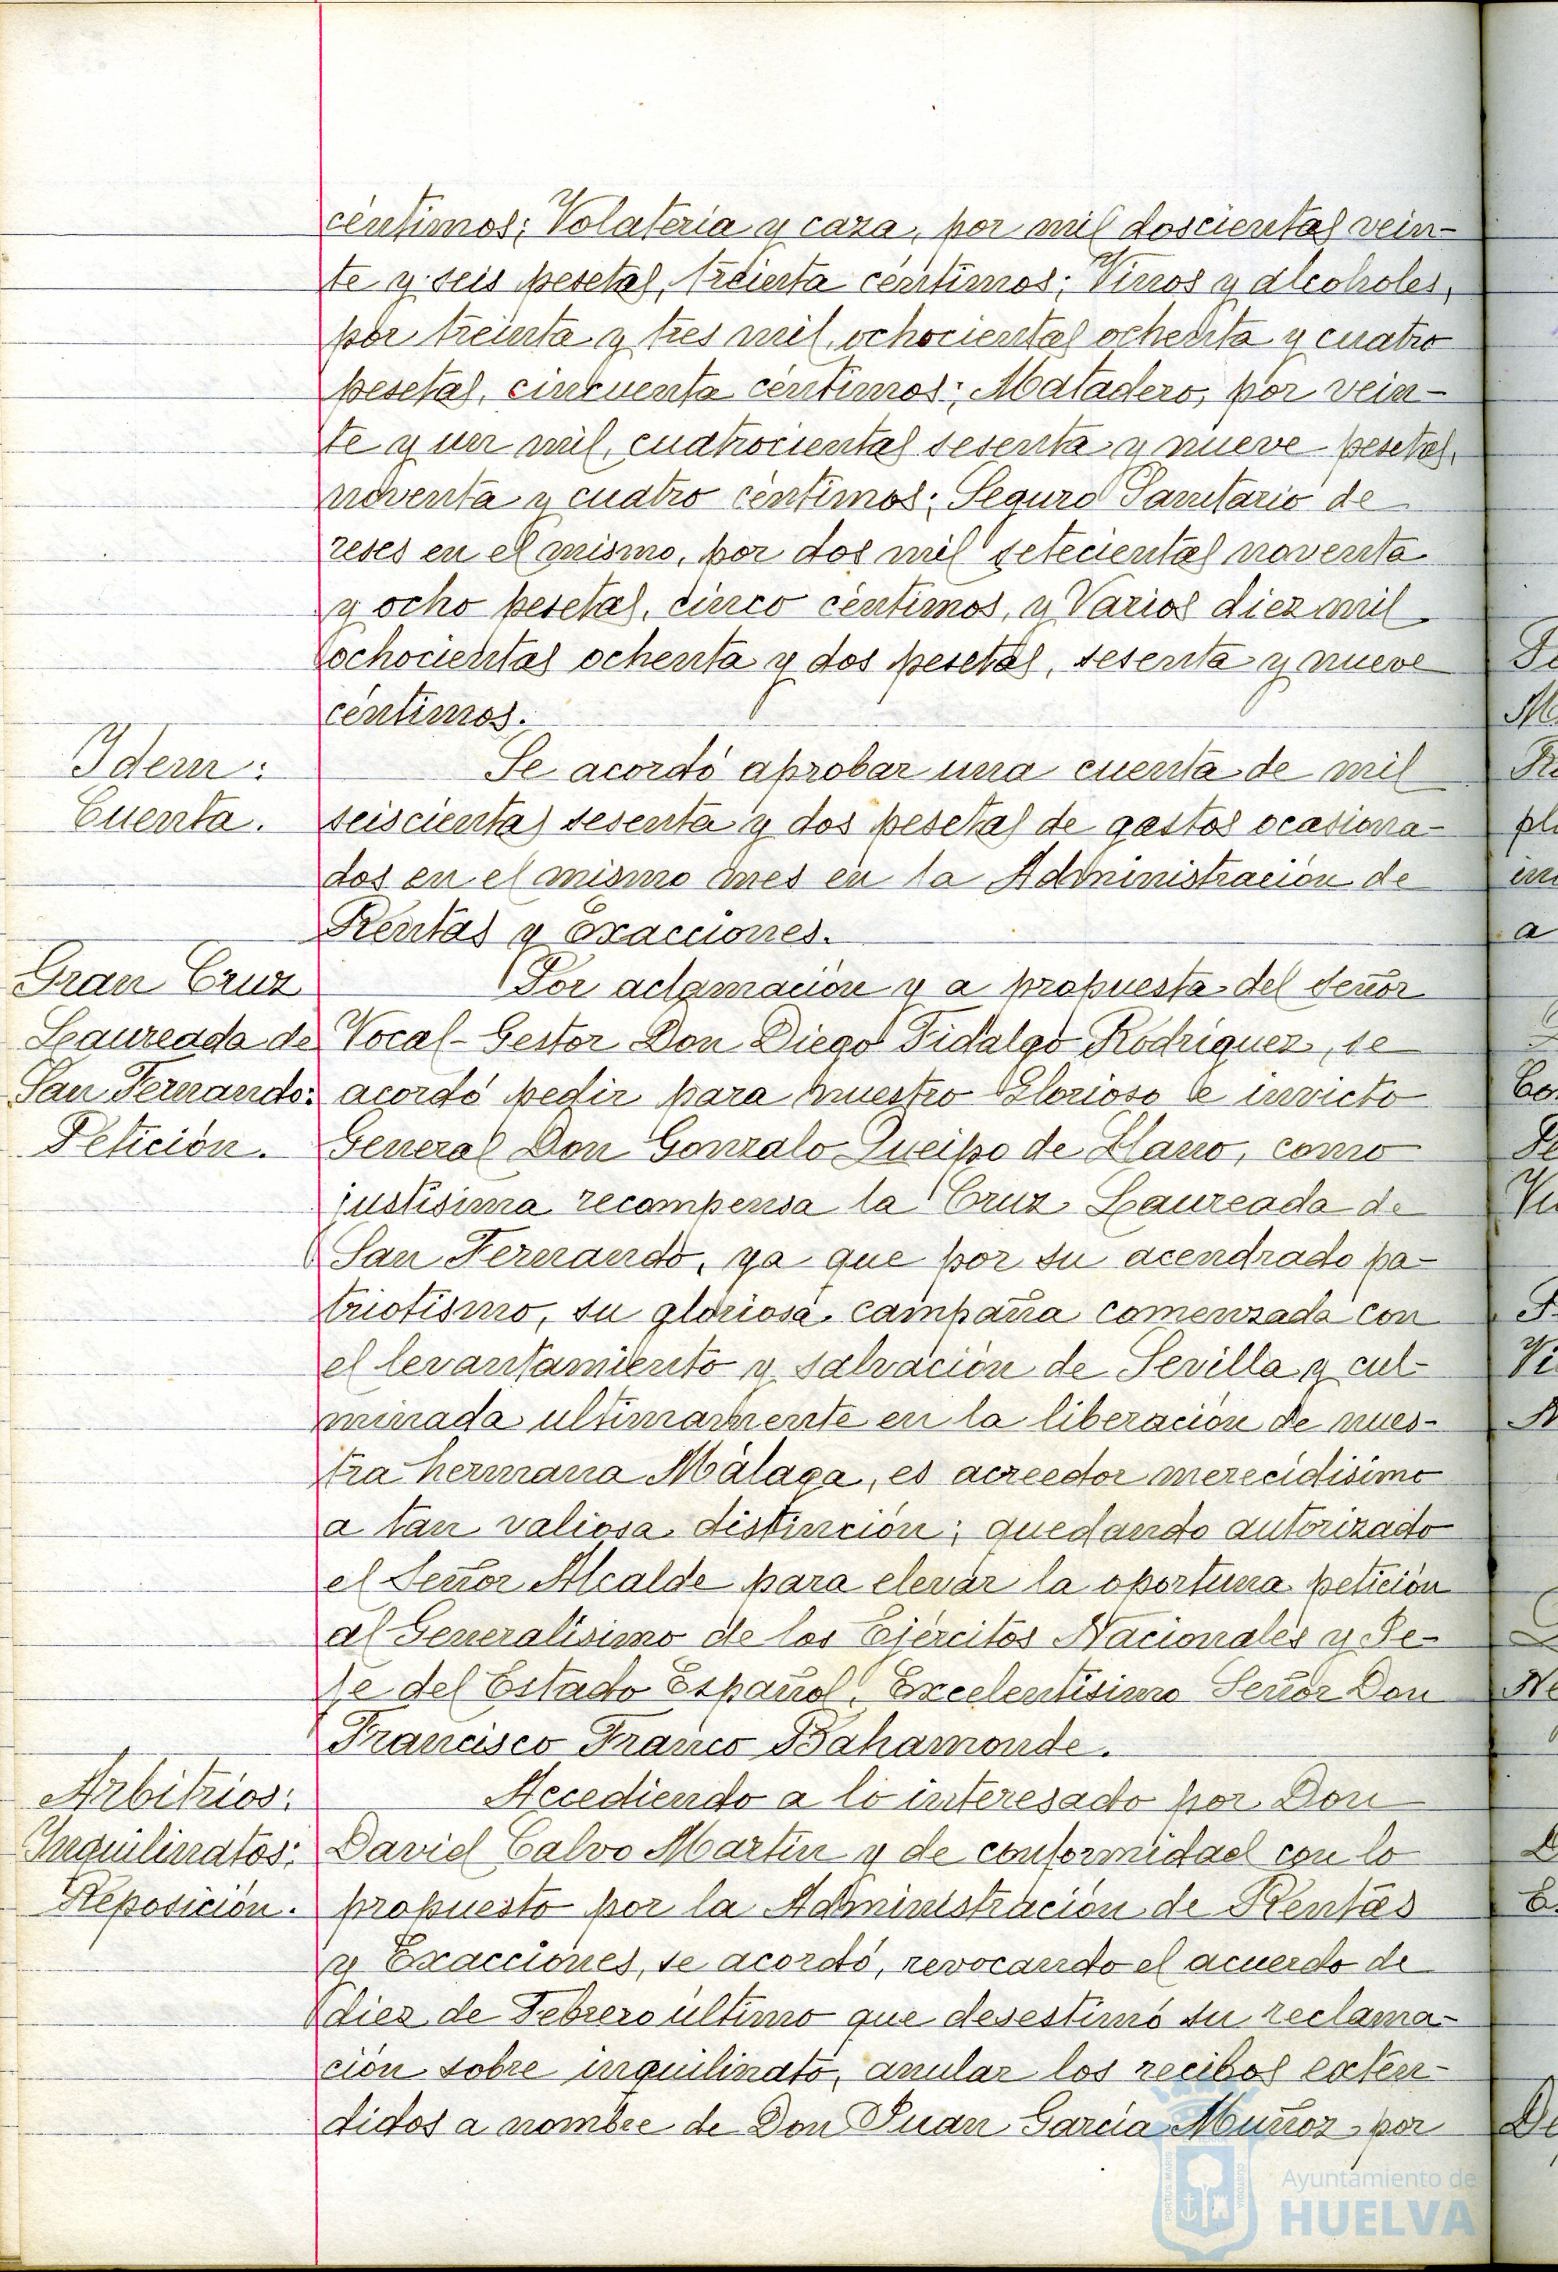 céntimos; Volatería y caza, por mil doscientas vein-
te y seis pesetas, treinta céntimos; Vinos y alcoholes,
por treinta y tres mil, ochocientas ochenta y cuatro
pesetas, cincuenta céntimos; Matadero, por vein-
te y un mil, cuatrocientas sesenta y nueve pesetas,
noventa y cuatro céntimos; Seguro Sanitario de
reses en el mismo, por dos mil setecientas noventa
y ocho pesetas, cinco céntimos, y Varios diez mil
ochocientas ochenta y dos pesetas, sesenta y nueve
céntimos.
Idem:
Cuenta.
Se acordó aprobar una cuenta de mil
seiscientas sesenta y dos pesetas de gastos ocasiona-
dos en el mismo mes en la Administración de
Rentas y Exacciones.
Gran Cruz
Laureada de
San Fernando:
Petición.
Por aclamación y a propuesta del señor
Vocal-Gestor Don Diego Fidalgo Rodríguez, se
acordó pedir para nuestro Glorioso e invicto
General Don Gonzalo Queipo de Llano, como
justísima recompensa la Cruz Laureada de
San Fernando, ya que por su acendrado pa-
triotismo, su gloriosa campaña comenzada con
el levantamiento y salvación de Sevilla y cul-
minada ultimamente en la liberación de nues-
tra hermana Málaga, es acreedor merecidísimo
a tan valiosa distinción; quedando autorizado
el Señor Alcalde para elevar la oportuna petición
al Generalísimo de los Ejércitos Nacionales y Je-
fe del Estado Español, Excelentísimo Señor Don
Francisco Franco Bahamonde.
Arbitrios:
Inquilinatos:
Reposición.
Accediendo a lo interesado por Don
David Calvo Martín y de conformidad con lo
propuesto por la Administración de Rentas
y Exacciones, se acordó, revocando el acuerdo de
diez de Febrero último que desestimó su reclama-
ción sobre inquilinato, anular los recibos exten-
didos a nombre de Don Juan García Muñoz, por
Ayuntamiento de
HUELVA